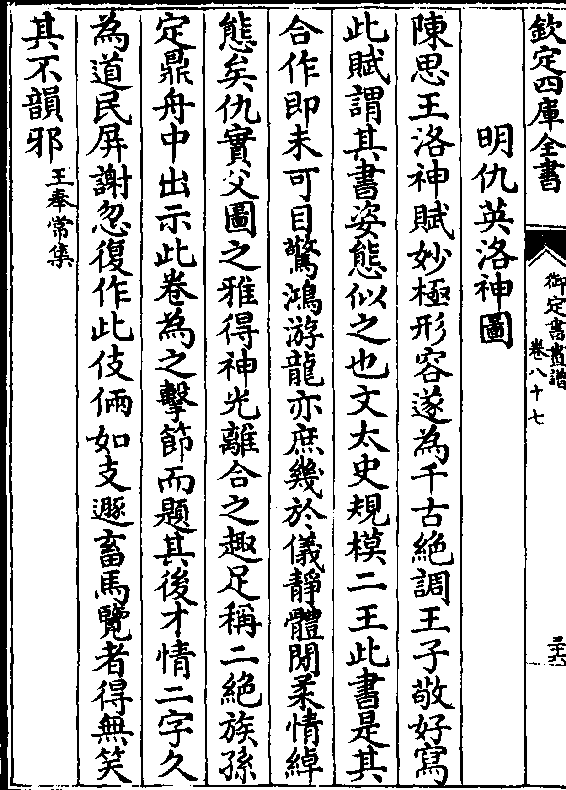 欽定四庫全書
御定書畫譜
卷八十七
三六
明仇英洛神圖
陳思王洛神賦妙極形容遂為千古絶調王子敬好寫
此賦謂其書姿態似之也文太史規模二王此書是其
合作即未可目驚鴻游龍亦庶幾於儀靜體閒柔情綽
態矣仇實父圖之雅得神光離合之趣足稱二絶族孫
定鼎舟中出示此卷為之擊節而題其後才情二字久
為道民屏謝忽復作此伎倆如支遯畜馬覽者得無笑
其不韻邪王奉常集